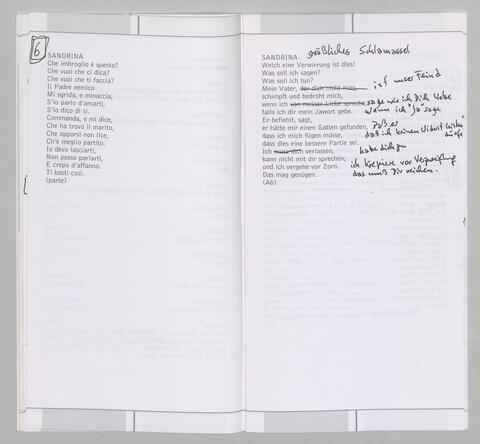 6
SANDRINA
Che imbroglio è questo?
Che vuoi che ci dica?
Che vuoi che ti faccia?
Il Padre nemico
Mi sgrida, e minaccia,
S'io parlo d'amarti,
S'io dico di si.
Commanda, e mi dice,
Che ha trovo il marito,
Che opporsi non lice,
Ch'è meglio partito.
Io devo lasciarti,
Non posso parlarti,
E crepo d'affanno.
Ti basti così.
(parte)
SANDRINA gräßliches Schlamassel
Welch eine Verwirrung ist dies!
Was soll ich sagen?
Was soll ich tun?
Mein Vater, der dich nicht mag, ist unser Feind
schimpft und bedroht mich,
wenn ich von meiner Liebe spreche sage wie ich Dich liebe
falls ich dir mein Jawort gebe. wenn ich "Ja" sage
Er befiehlt, sagt,
er hätte mir einen Gatten gefunden, Daß er
dass ich mich fügen müsse, daß ich keinen
dass dies eine bessere Partie sei. dürfe
Ich muss dich verlassen, habe dich zu
kann nicht mit dir sprechen; ich krepiere vor Verzweiflung
und ich vergehe vor Zorn. das muß Dir reichen.
Das mag genügen.
(Ab)